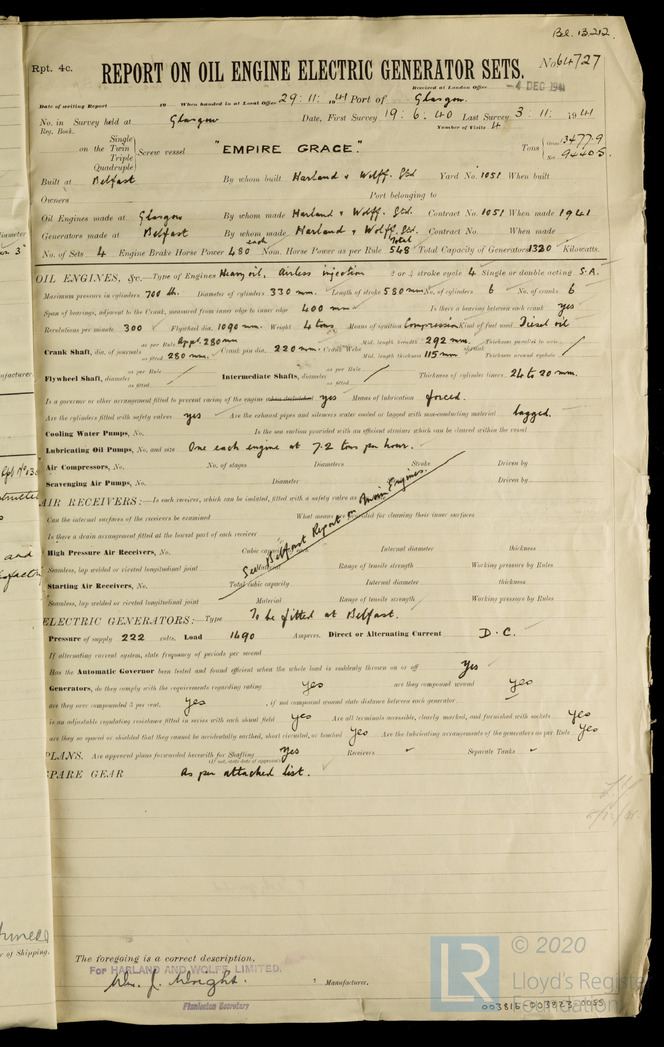 Bel. 13,212.
Rpt. 4c.
REPORT ON OIL ENGINE ELECTRIC GENERATOR SETS.
No 64727
Received at London Office -4 DEC 1941
Date of writing Report 19 When handed in at Local Office 29: 11: 1941 Port of Glasgow.
No. in Survey held at Glasgow Date, First Survey 19: 6. 40 Last Survey 3: 11: 1941
Reg. Book. Number of Visits 4
Single
on the Twin
Triple
Quadruple
Screw vessel "EMPIRE GRACE." Tons Gross 13477.9
Net 9440.5
Built at Belfast By whom built Harland & Wolff. Ltd Yard No. 1051 When built
Owners Port belonging to
Oil Engines made at Glasgow By whom made Harland & Wolff. Ltd. Contract No. 1051 When made 1941
Generators made at Belfast By whom made Harland & Wolff. Ltd. Contract No. When made
No. of Sets 4 Engine Brake Horse Power 480 each Nom. Horse Power as per Rule 548 Total Total Capacity of Generators 1320 Kilowatts.
OIL ENGINES, &c.—Type of Engines Heavy oil, Airless injection 2 or 4 stroke cycle 4 Single or double acting S.A.
Maximum pressure in cylinders 700 lb. Diameter of cylinders 330 mm. Length of stroke 580 mm No. of cylinders 6 No. of cranks 6
Span of bearings, adjacent to the Crank, measured from inner edge to inner edge 400 mm Is there a bearing between each crank yes
Revolutions per minute 300 Flywheel dia. 1090 mm. Weight 4 tons Means of ignition Compression Kind of fuel used Diesel oil
Crank Shaft, dia. of journals as per Rule Appd. 280 mm as fitted 280 mm. Crank pin dia. 220 mm. Crank Webs Mid. length breadth 292 mm. Mid. length thickness 115 mm Thickness parallel to axis Thickness around eyehole
Flywheel Shaft, diameter as per Rule as fitted Intermediate Shafts, diameter as per Rule as fitted Thickness of cylinder liners 24 to 20 mm.
Is a governor or other arrangement fitted to prevent racing of the engine yes Means of lubrication forced.
Are the cylinders fitted with safety valves yes Are the exhaust pipes and silencers water cooled or lagged with non-conducting material lagged.
Cooling Water Pumps, No. Is the sea suction provided with an efficient strainer which can be cleared within the vessel
Lubricating Oil Pumps, No. and size One each engine at 7.2 tons per hour.
Air Compressors, No. No. of stages Diameters Stroke Driven by
Scavenging Air Pumps, No. Diameter Driven by
AIR RECEIVERS:—Is each receiver, which can be isolated, fitted with a safety valve as
See Belfast Report on Main Engines.
Can the internal surfaces of the receivers be examined What means are provided for cleaning their inner surfaces
Is there a drain arrangement fitted at the lowest part of each receiver
High Pressure Air Receivers, No. Cubic capacity Internal diameter thickness
Seamless, lap welded or riveted longitudinal joint Material Range of tensile strength Working pressure by Rules
Starting Air Receivers, No. Total cubic capacity Internal diameter thickness
Seamless, lap welded or riveted longitudinal joint Material Range of tensile strength Working pressure by Rules
ELECTRIC GENERATORS:—Type To be fitted at Belfast.
Pressure of supply 222 volts. Load 1490 Amperes. Direct or Alternating Current D.C.
If alternating current system, state frequency of periods per second
Has the Automatic Governor been tested and found efficient when the whole load is suddenly thrown on or off yes
Generators, do they comply with the requirements regarding rating yes are they compound wound yes
are they over compounded 5 per cent. yes , if not compound wound state distance between each generator
is an adjustable regulating resistance fitted in series with each shunt field yes Are all terminals accessible, clearly marked, and furnished with sockets yes
are they so spaced or shielded that they cannot be accidentally earthed, short circuited, or touched yes Are the lubricating arrangements of the generators as per Rule yes
PLANS. Are approved plans forwarded herewith for Shafting yes Receivers Separate Tanks
(If not, state date of approval)
SPARE GEAR As per attached list.
The foregoing is a correct description,
For HARLAND AND WOLFF, LIMITED.
Wm. J. Wright. Manufacturer.
© 2020
LR Lloyd's Register
Foundation
003815-003823-0055